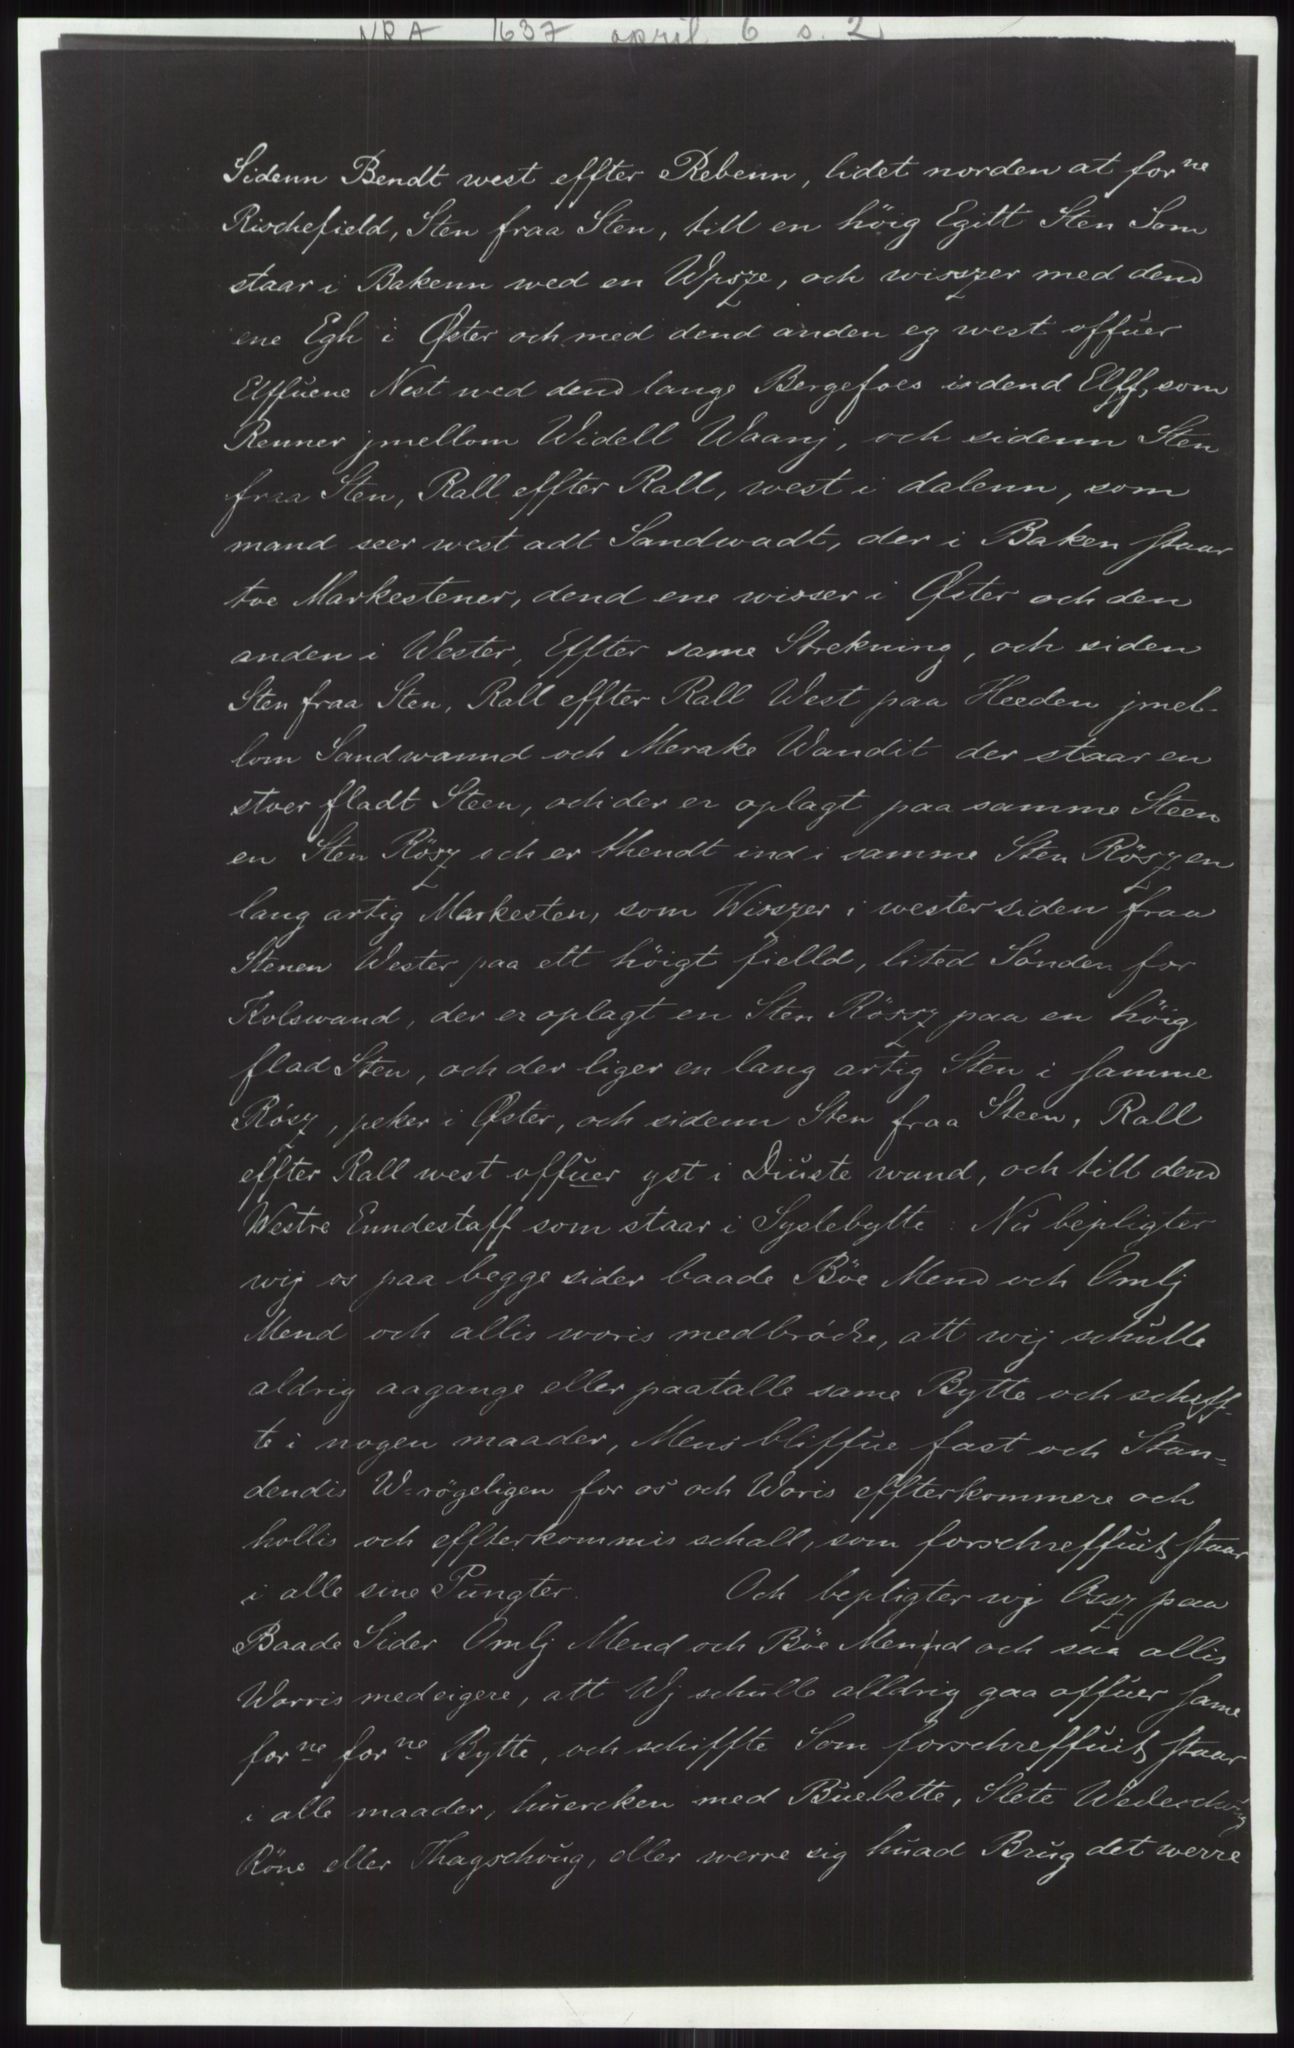 NRA 1637 april 6 s. 2
Sidenn Bendt west effter Rebenn, lidet norden at forne
Rischefield, Sten fraa Sten, till en höig Egitt Sten Som
staar i Bakenn wed en Wpsze, och wisszer med dend
ene Egh i Øster och med dend anden eg west offuer
Elffuene Nest wed dend lange Bergefoes i dend Elff, som
Renner jmellom Widell Waanj, och sidenn Sten
fraa Sten, Rall effter Rall, west i dalenn, som
mand seer west adt Sandwadt, der i Baken staar
toe Markestener, dend ene wisser i Øster och den
anden i Wester, Effter same Strekning, och siden
Sten fraa Sten, Rall effter Rall West paa Heeden jmel-
lom Sandwannd och Merake Wandit der staar en
stoer fladt Steen, och der er oplagt paa samme Steen
en Sten Rösz och er thendt ind i samme Sten Rösz en
lang artig Markesten, som Wisszer i wester siden fraa
Stenen Wester paa ett höigt fielld, lited Sönden for
Kolswand, der er oplagt en Sten Rössz paa en höig
flad Sten, och der liger en lang artig Sten i samme
Rösz, peker i Øster, och sidenn Sten fraa Steen, Rall
effter Rall west offuer yst i Diuste wand, och till dend
Westre Enndestaff som staar i Syslebytte: Nu bepligter
wij os paa begge sider baade Böe Mend och Omlj
Mend och allis woris medbrödre, att wij schulle
aldrig aagange eller paatalle same Bytte och schiff-
te i nogen maader, Mens bliffue fast och Stan-
dendis W-rögeligen for os och Woris effterkommere och
hollis och effterkommis schall, som forschreffuit staar
i alle sine Pungter. Och bepligter wj Ossz paa
Baade Sider Omlj Mend och Böe Mennd och saa allis
Worris medeigere, att Wj schulle alldrig gaa offuer same
forne forne Bytte, och schiffte Som forschreffuit staar
i alle maader, huercken med Buebette, Slete Wedeschoug
Röne eller Thagschoug, eller werre sig huad Brug det werre